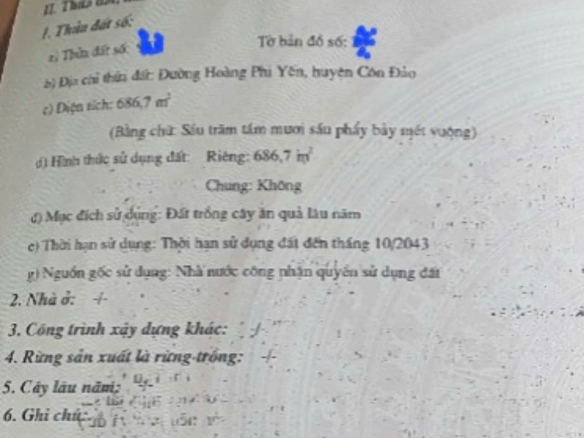 II. Thửa đất,
1. Thửa đất số:
a) Thửa đất số: Tờ bản đồ số:
b) Địa chỉ thửa đất: Đường Hoàng Phi Yến, huyện Côn Đảo
c) Diện tích: 686,7 m²
(Bằng chữ: Sáu trăm tám mươi sáu phẩy bảy mét vuông)
d) Hình thức sử dụng đất: Riêng: 686,7 m²
Chung: Không
đ) Mục đích sử dụng: Đất trồng cây ăn quả lâu năm
e) Thời hạn sử dụng: Thời hạn sử dụng đất đến tháng 10/2043
g) Nguồn gốc sử dụng: Nhà nước công nhận quyền sử dụng đất
2. Nhà ở: -/-
3. Công trình xây dựng khác: -/-
4. Rừng sản xuất là rừng trồng: -/-
5. Cây lâu năm:
6. Ghi chú: